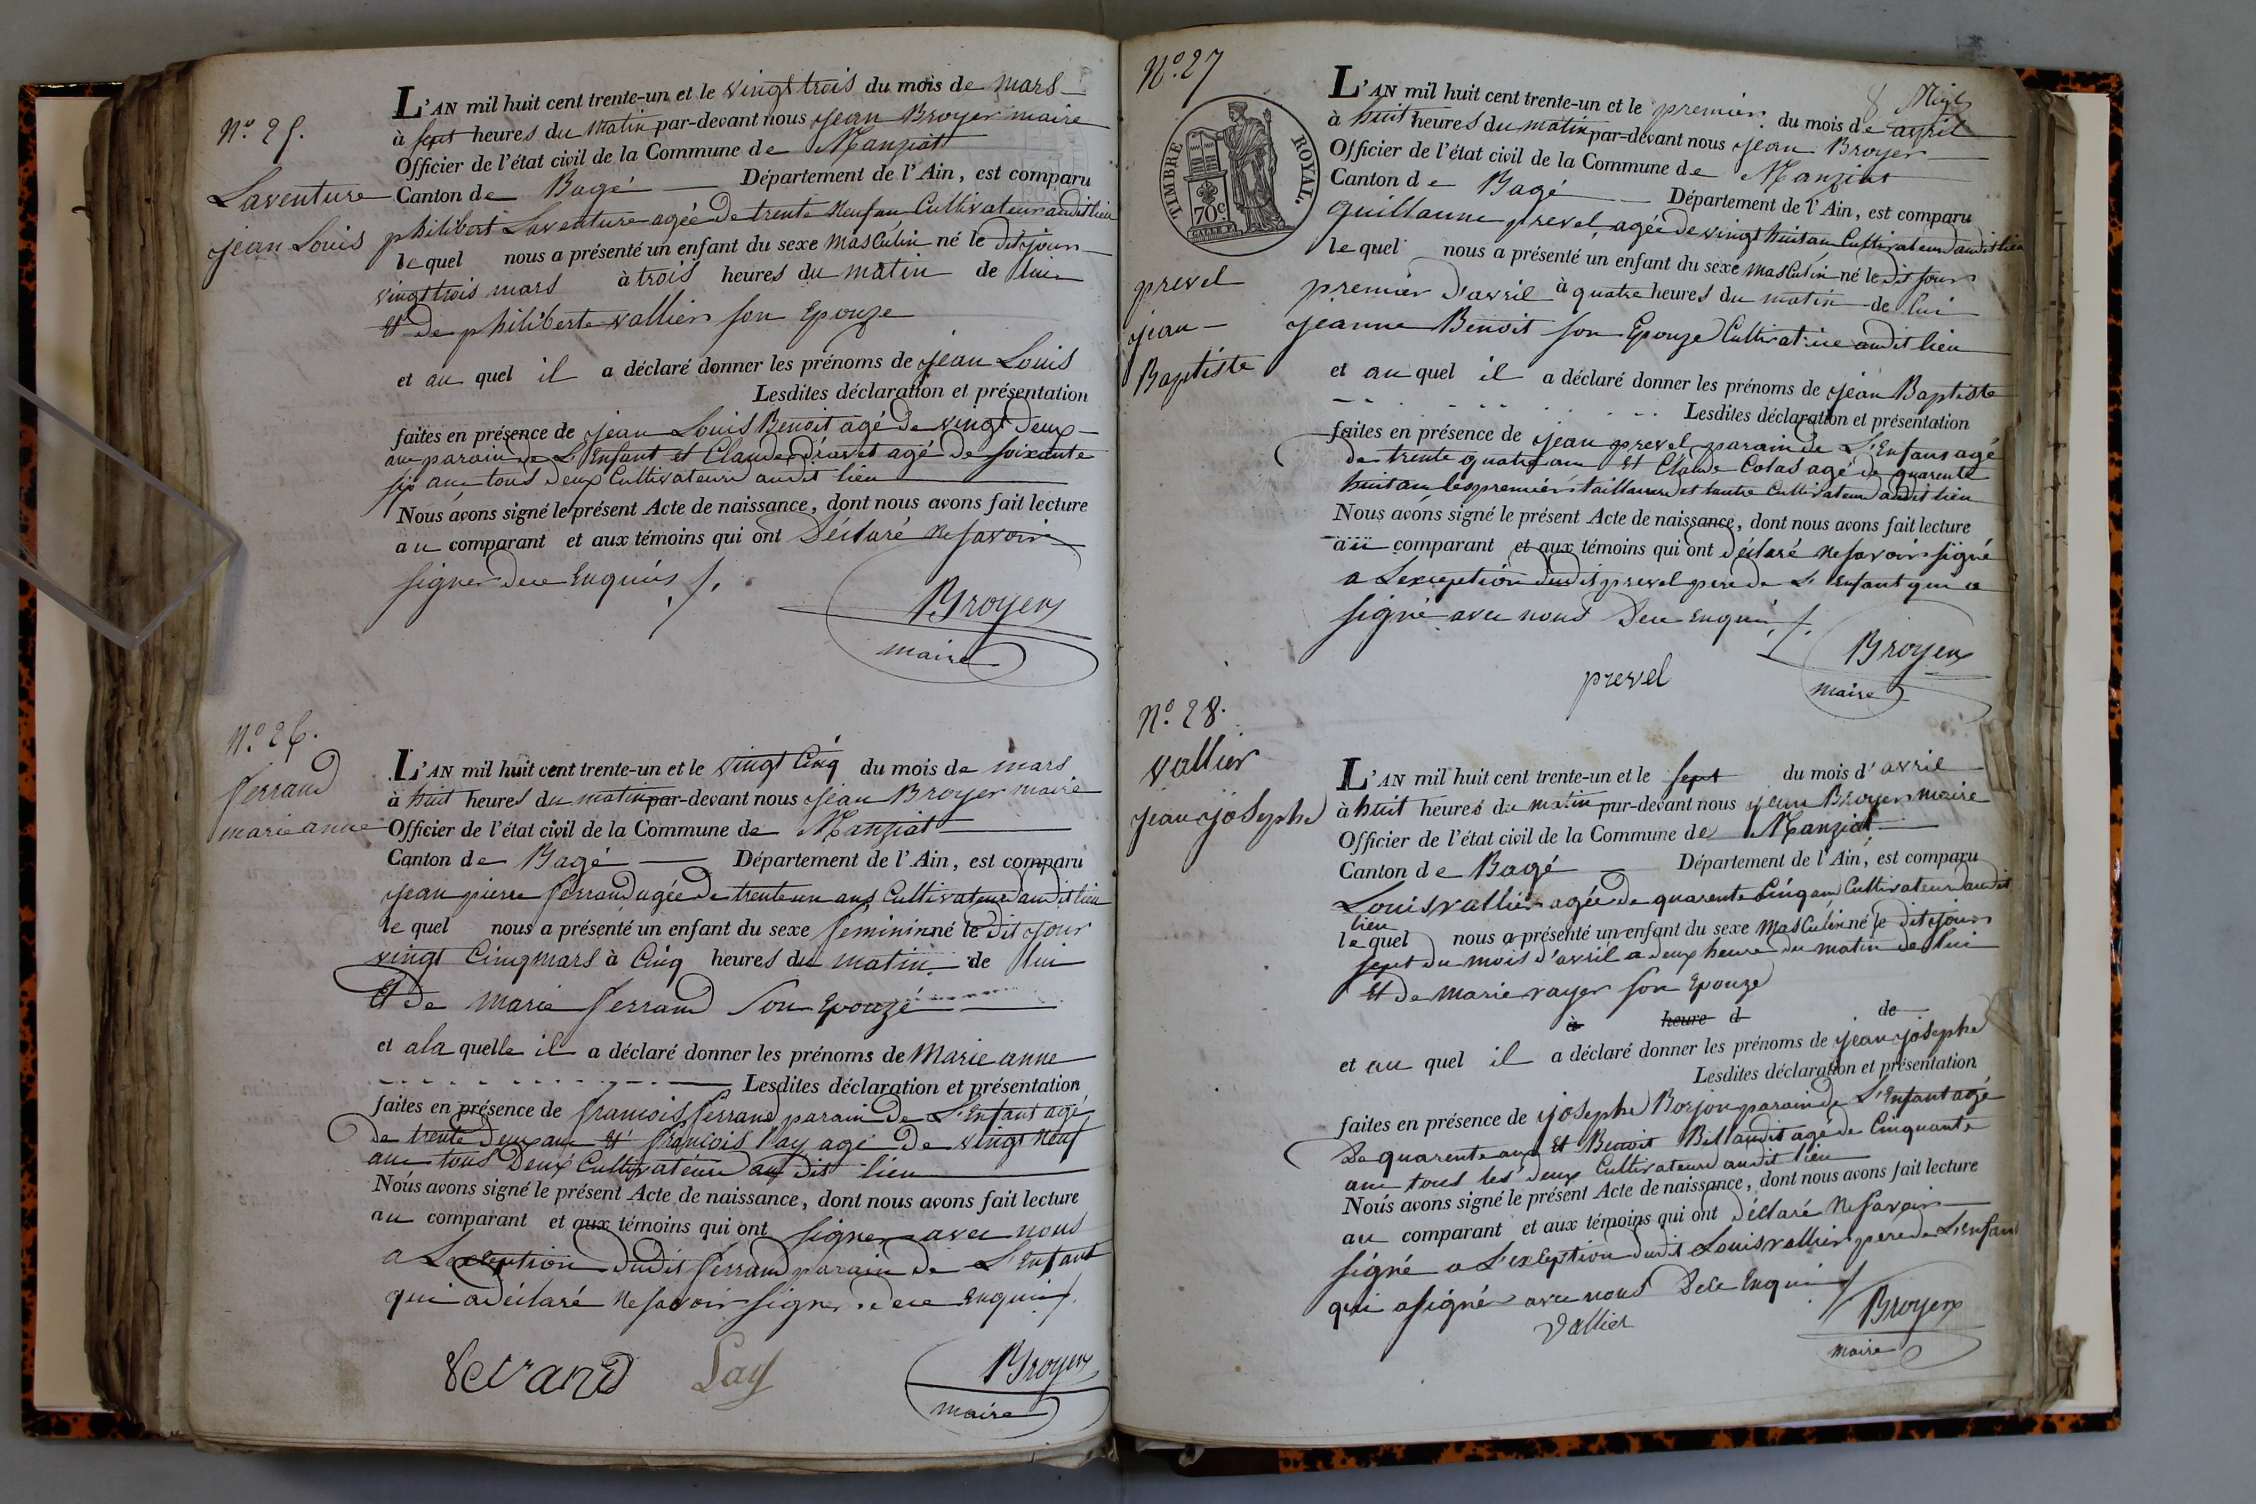 N.o 25.
Laventure
jean Louis
L'AN mil huit cent trente-un et le vingt trois du mois de mars
à sept heures du matin par-devant nous jean Broyer maire
Officier de l'état civil de la Commune de Manziat
Canton de Bagé Département de l'Ain, est comparu
philibert Laventure agée de trente neuf an Cultivateur audit lieu
le quel nous a présenté un enfant du sexe masculin né le dit jour
vingt trois mars à trois heures du matin de lui
et de philiberte vallier son Epouze
et au quel il a déclaré donner les prénoms de jean Louis
Lesdites déclaration et présentation
faites en présence de jean Louis Benoit agé de vingt deux
an parain de L'Enfant et Claude agé de soixante
six an tous deux Cultivateur audit lieu
Nous avons signé le présent Acte de naissance, dont nous avons fait lecture
au comparant et aux témoins qui ont déclaré ne savoir
signer de ce Enquis ./.
Broyer
maire
N.o 26.
ferrand
marie anne
L'AN mil huit cent trente-un et le vingt Cinq du mois de mars
à huit heures du matin par-devant nous jean Broyer maire
Officier de l'état civil de la Commune de Manziat
Canton de Bagé Département de l'Ain, est comparu
jean pierre ferrand agée de trente un ans Cultivateur audit lieu
le quel nous a présenté un enfant du sexe feminin né le dit jour
vingt Cinq mars à Cinq heures du matin de lui
et de marie ferrand son Epouzé
et a la quelle il a déclaré donner les prénoms de Marie anne
Lesdites déclaration et présentation
faites en présence de francois ferrand parain de L'Enfant agé
de trente deux an et francois Pay agé de vingt neuf
an tous deux Cultivateur au dit lieu
Nous avons signé le présent Acte de naissance, dont nous avons fait lecture
au comparant et aux témoins qui ont signer avec nous
a L'exception dudit ferrand parain de L'Enfant
qui a déclaré ne savoir signer de ce Enquis ./.
ferrand Pay Broyer
maire
N.o 27
TIMBRE ROYAL.
70c
prevel
jean
Baptiste
L'AN mil huit cent trente-un et le premier du mois de avril
à huit heures du matin par-devant nous jean Broyer
Officier de l'état civil de la Commune de Manziat
Canton de Bagé Département de l'Ain, est comparu
guillaume prevel agée de vingt huit an Cultivateur audit lieu
le quel nous a présenté un enfant du sexe masculin né le dit jour
premier d'avril à quatre heures du matin de lui
jeanne Benoit son Epouze Cultivatrice audit lieu
et au quel il a déclaré donner les prénoms de jean Baptiste
Lesdites déclaration et présentation
faites en présence de jean prevel parain de L'Enfant agé
de trente quatre an et Claude Colas agé de quarente
huit an le premier taillaur et lautre Cultivateur audit lieu
Nous avons signé le présent Acte de naissance, dont nous avons fait lecture
au comparant et aux témoins qui ont déclaré ne savoir signé
a Lexception dudit prevel pere de L'Enfant qui a
signé avec nous de ce Enquis ./.
prevel
Broyer
maire
N.o 28.
vallier
jean josephe
L'AN mil huit cent trente-un et le sept du mois d'avril
à huit heures du matin par-devant nous jean Broyer maire
Officier de l'état civil de la Commune de Manziat
Canton de Bagé Département de l'Ain, est comparu
Louis vallier agée de quarente Cinq an Cultivateur audit
lieu
le quel nous a présenté un enfant du sexe masculin né le dit jour
sept du mois d'avril a deux heure du matin de lui
et de marie rayer son Epouze
à heure d de
et au quel il a déclaré donner les prénoms de jean josephe
Lesdites déclaration et présentation
faites en présence de josephe Borjon parain de L'Enfant agé
de quarente an et Benoit Billaudit agé de Cinquante
an tous les deux Cultivateur audit lieu
Nous avons signé le présent Acte de naissance, dont nous avons fait lecture
au comparant et aux témoins qui ont déclaré ne savoir
signé a L'exception dudit Louis vallier pere de L'Enfant
qui a signé avec nous de ce Enquis ./.
vallier
Broyer
maire